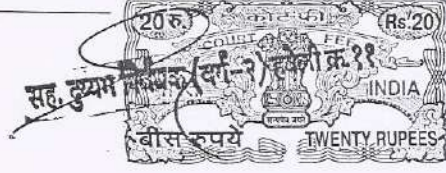 20 रु.
कोर्ट फी
Rs. 20
COURT FEE
सह. दुय्यम निबंधक (वर्ग-२) हवेली क्र. ११
INDIA
सत्यमेव जयते
बीस रुपये
TWENTY RUPEES